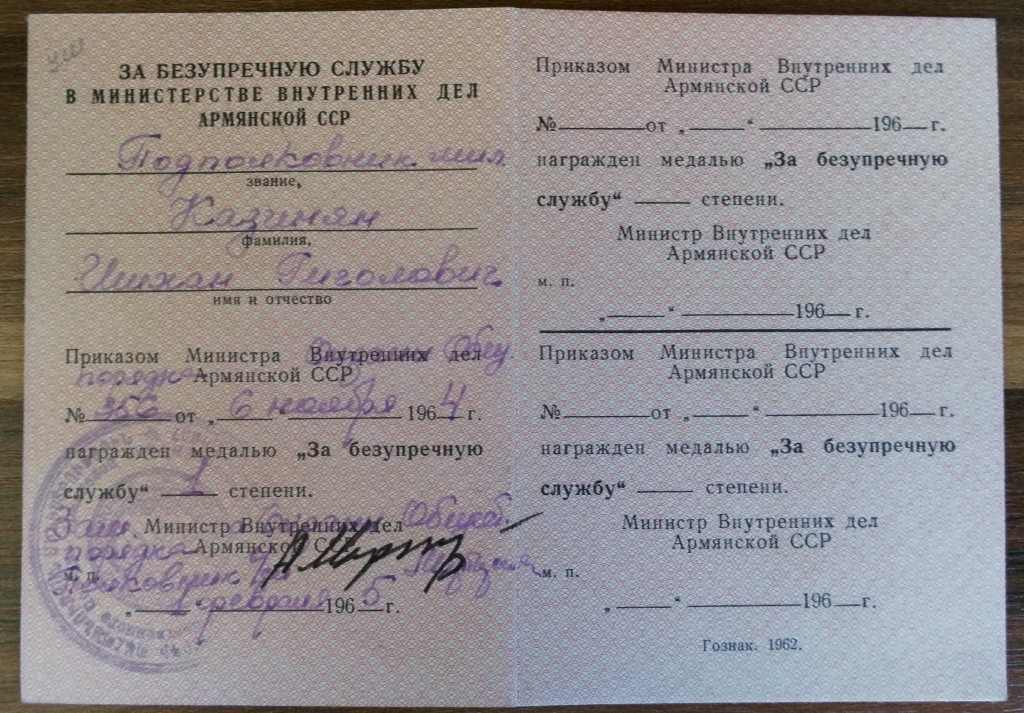 ЗА БЕЗУПРЕЧНУЮ СЛУЖБУ
В МИНИСТЕРСТВЕ ВНУТРЕННИХ ДЕЛ
АРМЯНСКОЙ ССР
Подполковник мил
звание,
Казинян
фамилия,
Гиголович
имя и отчество
Приказом Министра Внутренних дел
Охраны Общ.
порядка Армянской ССР
№ 356 от „ 6 “ ноября 1964 г.
награжден медалью „За безупречную
службу“ 1 степени.
Министр Внутренних дел
Охраны Обществ.
порядка Армянской ССР
м. п.
„ 1 “ февраля 1965 г.
Приказом Министра Внутренних дел
Армянской ССР
№ от „ “ 196 г.
награжден медалью „За безупречную
службу“ степени.
Министр Внутренних дел
Армянской ССР
м. п.
„ “ 196 г.
Приказом Министра Внутренних дел
Армянской ССР
№ от „ “ 196 г.
награжден медалью „За безупречную
службу“ степени.
Министр Внутренних дел
Армянской ССР
м. п.
„ “ 196 г.
Гознак. 1962.